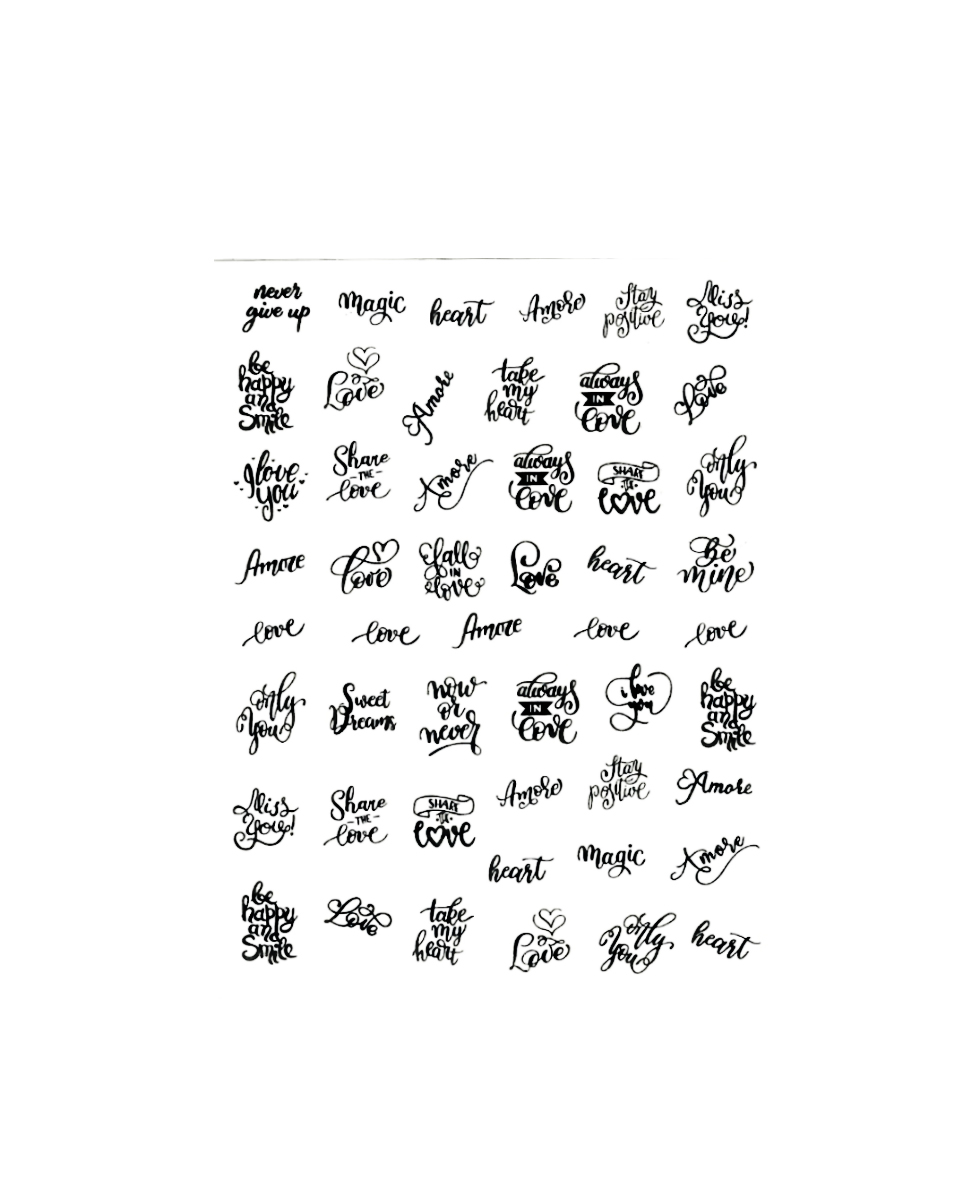 never
give up
Magic
heart
Amore
Stay
positive
Miss
You!
be
happy
and
Smile
Love
Amore
take
my
heart
always
IN
love
Love
I love
you
Share
THE
love
Amore
always
IN
love
SHARE
THE
LOVE
Only
You
Amore
love
fall
IN
love
Love
heart
Be
mine
love
love
Amore
love
love
Only
You
Sweet
Dreams
now
or
never
always
IN
love
i love
you
be
happy
and
Smile
Miss
You!
Share
THE
love
SHARE
THE
LOVE
Amore
Stay
positive
Amore
heart
Magic
Amore
be
happy
and
Smile
Love
take
my
heart
Love
Only
You
heart